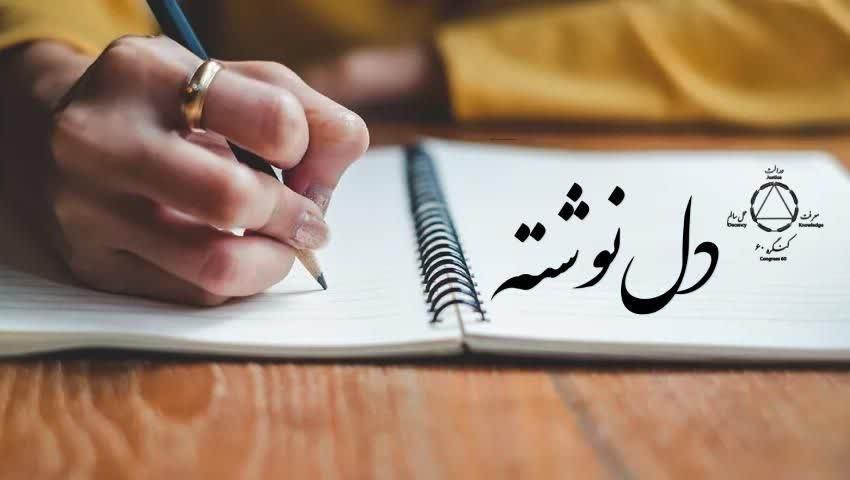 دل نوشته
عدالت
Justice
عمل سالم
معرفت
Decency
Knowledge
کنگره ۶۰
Congress 60